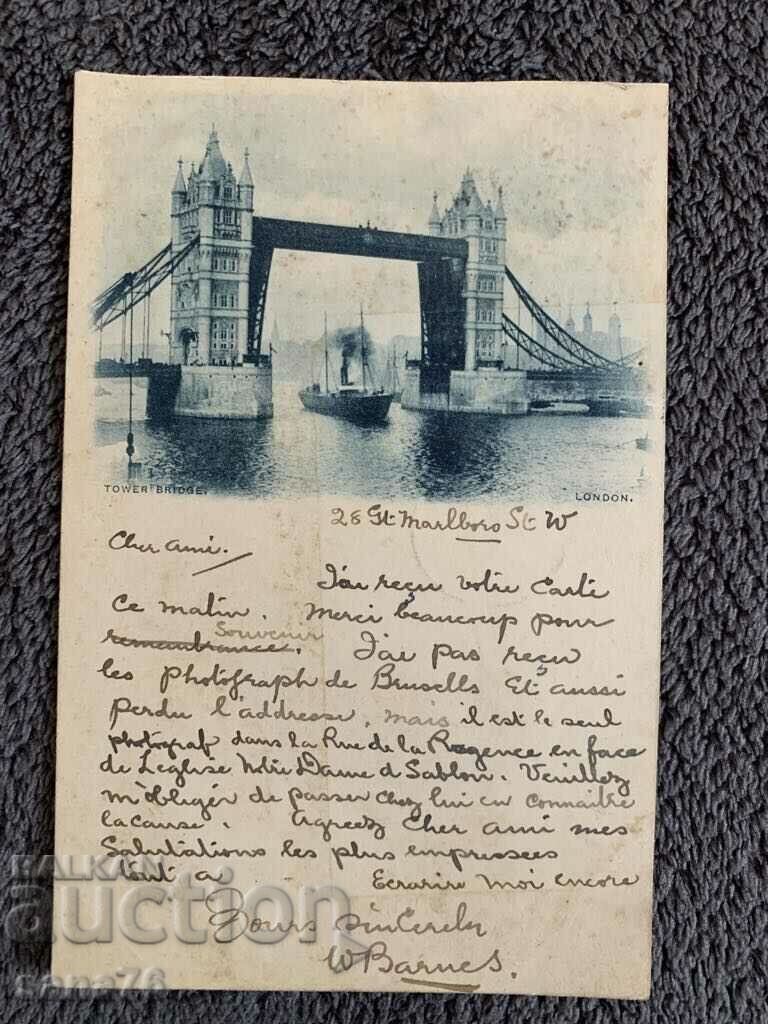 TOWER BRIDGE. LONDON.
28 Gt Marlboro St W
Cher Ami.
J'ai reçu votre Carte
Ce matin. Merci beaucoup pour
remembrance. Souvenir J'ai pas reçu
les photograph de Brusells Et aussi
perdu l'addresse, mais il est le seul
photograf dans la Rue de la Regence en face
de L'eglise Notre Dame d Sablon. Veuillez
m'obliger de passer chez lui en connaitre
la cause. Agreez Cher ami mes
Salutations les plus empressees
tout a Ecrarire moi encore
Yours Sincerely
W Barnes.
BALKAN
auction
sana76